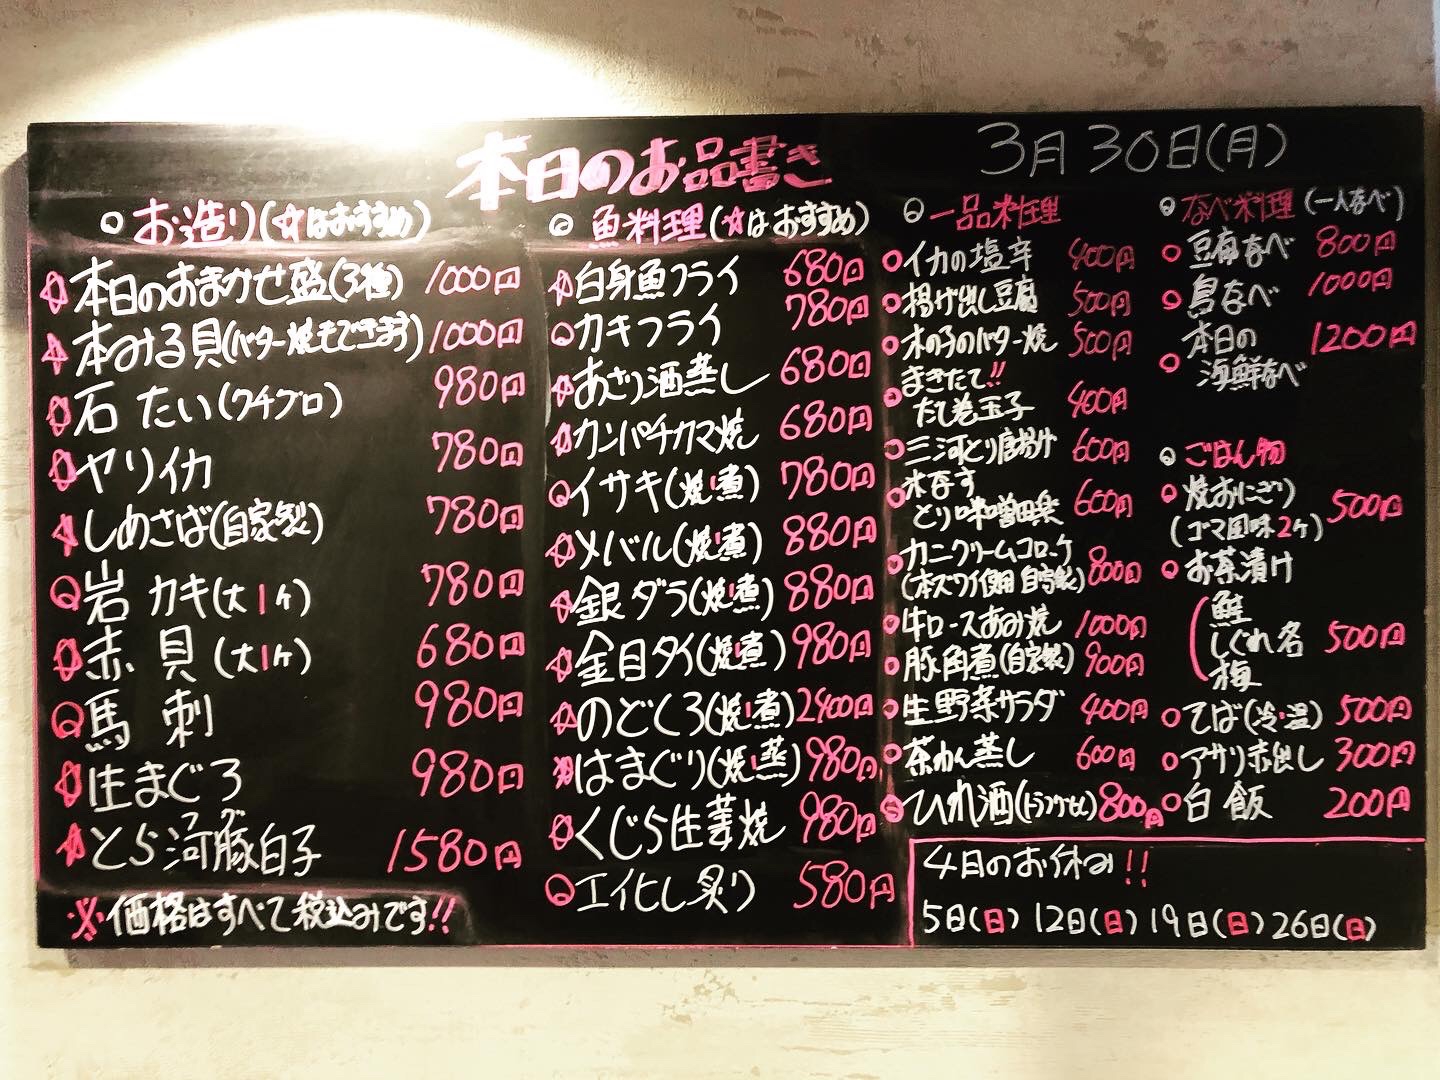 本日のお品書き
3月30日(月)
◎お造り(☆はおすすめ)
☆本日のおまかせ盛(3種) 1000円
☆本みる貝(バター焼もできます) 1000円
☆石たい(クチグロ) 980円
☆ヤリイカ 780円
☆しめさば(自家製) 780円
○岩カキ(大1ヶ) 780円
☆赤貝(大1ヶ) 680円
○馬刺 980円
☆生まぐろ 980円
☆とら河豚白子 1580円
フグ
※価格はすべて税込みです!!
◎魚料理(☆はおすすめ)
☆白身魚フライ 680円
○カキフライ 780円
☆あさり酒蒸し 680円
☆カンパチカマ焼 680円
○イサキ(焼・煮) 780円
☆メバル(焼・煮) 880円
☆銀ダラ(焼・煮) 880円
☆金目タイ(焼・煮) 980円
☆のどくろ(焼・煮) 2400円
☆はまぐり(焼・蒸) 980円
☆くじら生姜焼 980円
○エイヒレ炙り 580円
◎一品料理
○イカの塩辛 400円
○揚げ出し豆腐 500円
○木の子のバター焼 500円
○まきたて!!
だし巻玉子 400円
○三河とり唐揚げ 600円
○米なす
とり味噌田楽 600円
○カニクリームコロッケ
(本ズワイ使用 自家製) 800円
○牛ロースあみ焼 1000円
○豚角煮(自家製) 900円
○生野菜サラダ 400円
○茶わん蒸し 600円
○ひれ酒(トラフグせん) 800円
◎なべ料理(一人なべ)
○豆腐なべ 800円
○鳥なべ 1000円
○本日の
海鮮なべ 1200円
◎ごはん物
○焼おにぎり
(ゴマ風味2ヶ) 500円
○お茶漬け
鮭
しぐれ名
梅 500円
○そば(冷・温) 500円
○アサリ赤出し 300円
○白飯 200円
4日のお休み!!
5日(日) 12日(日) 19日(日) 26日(日)